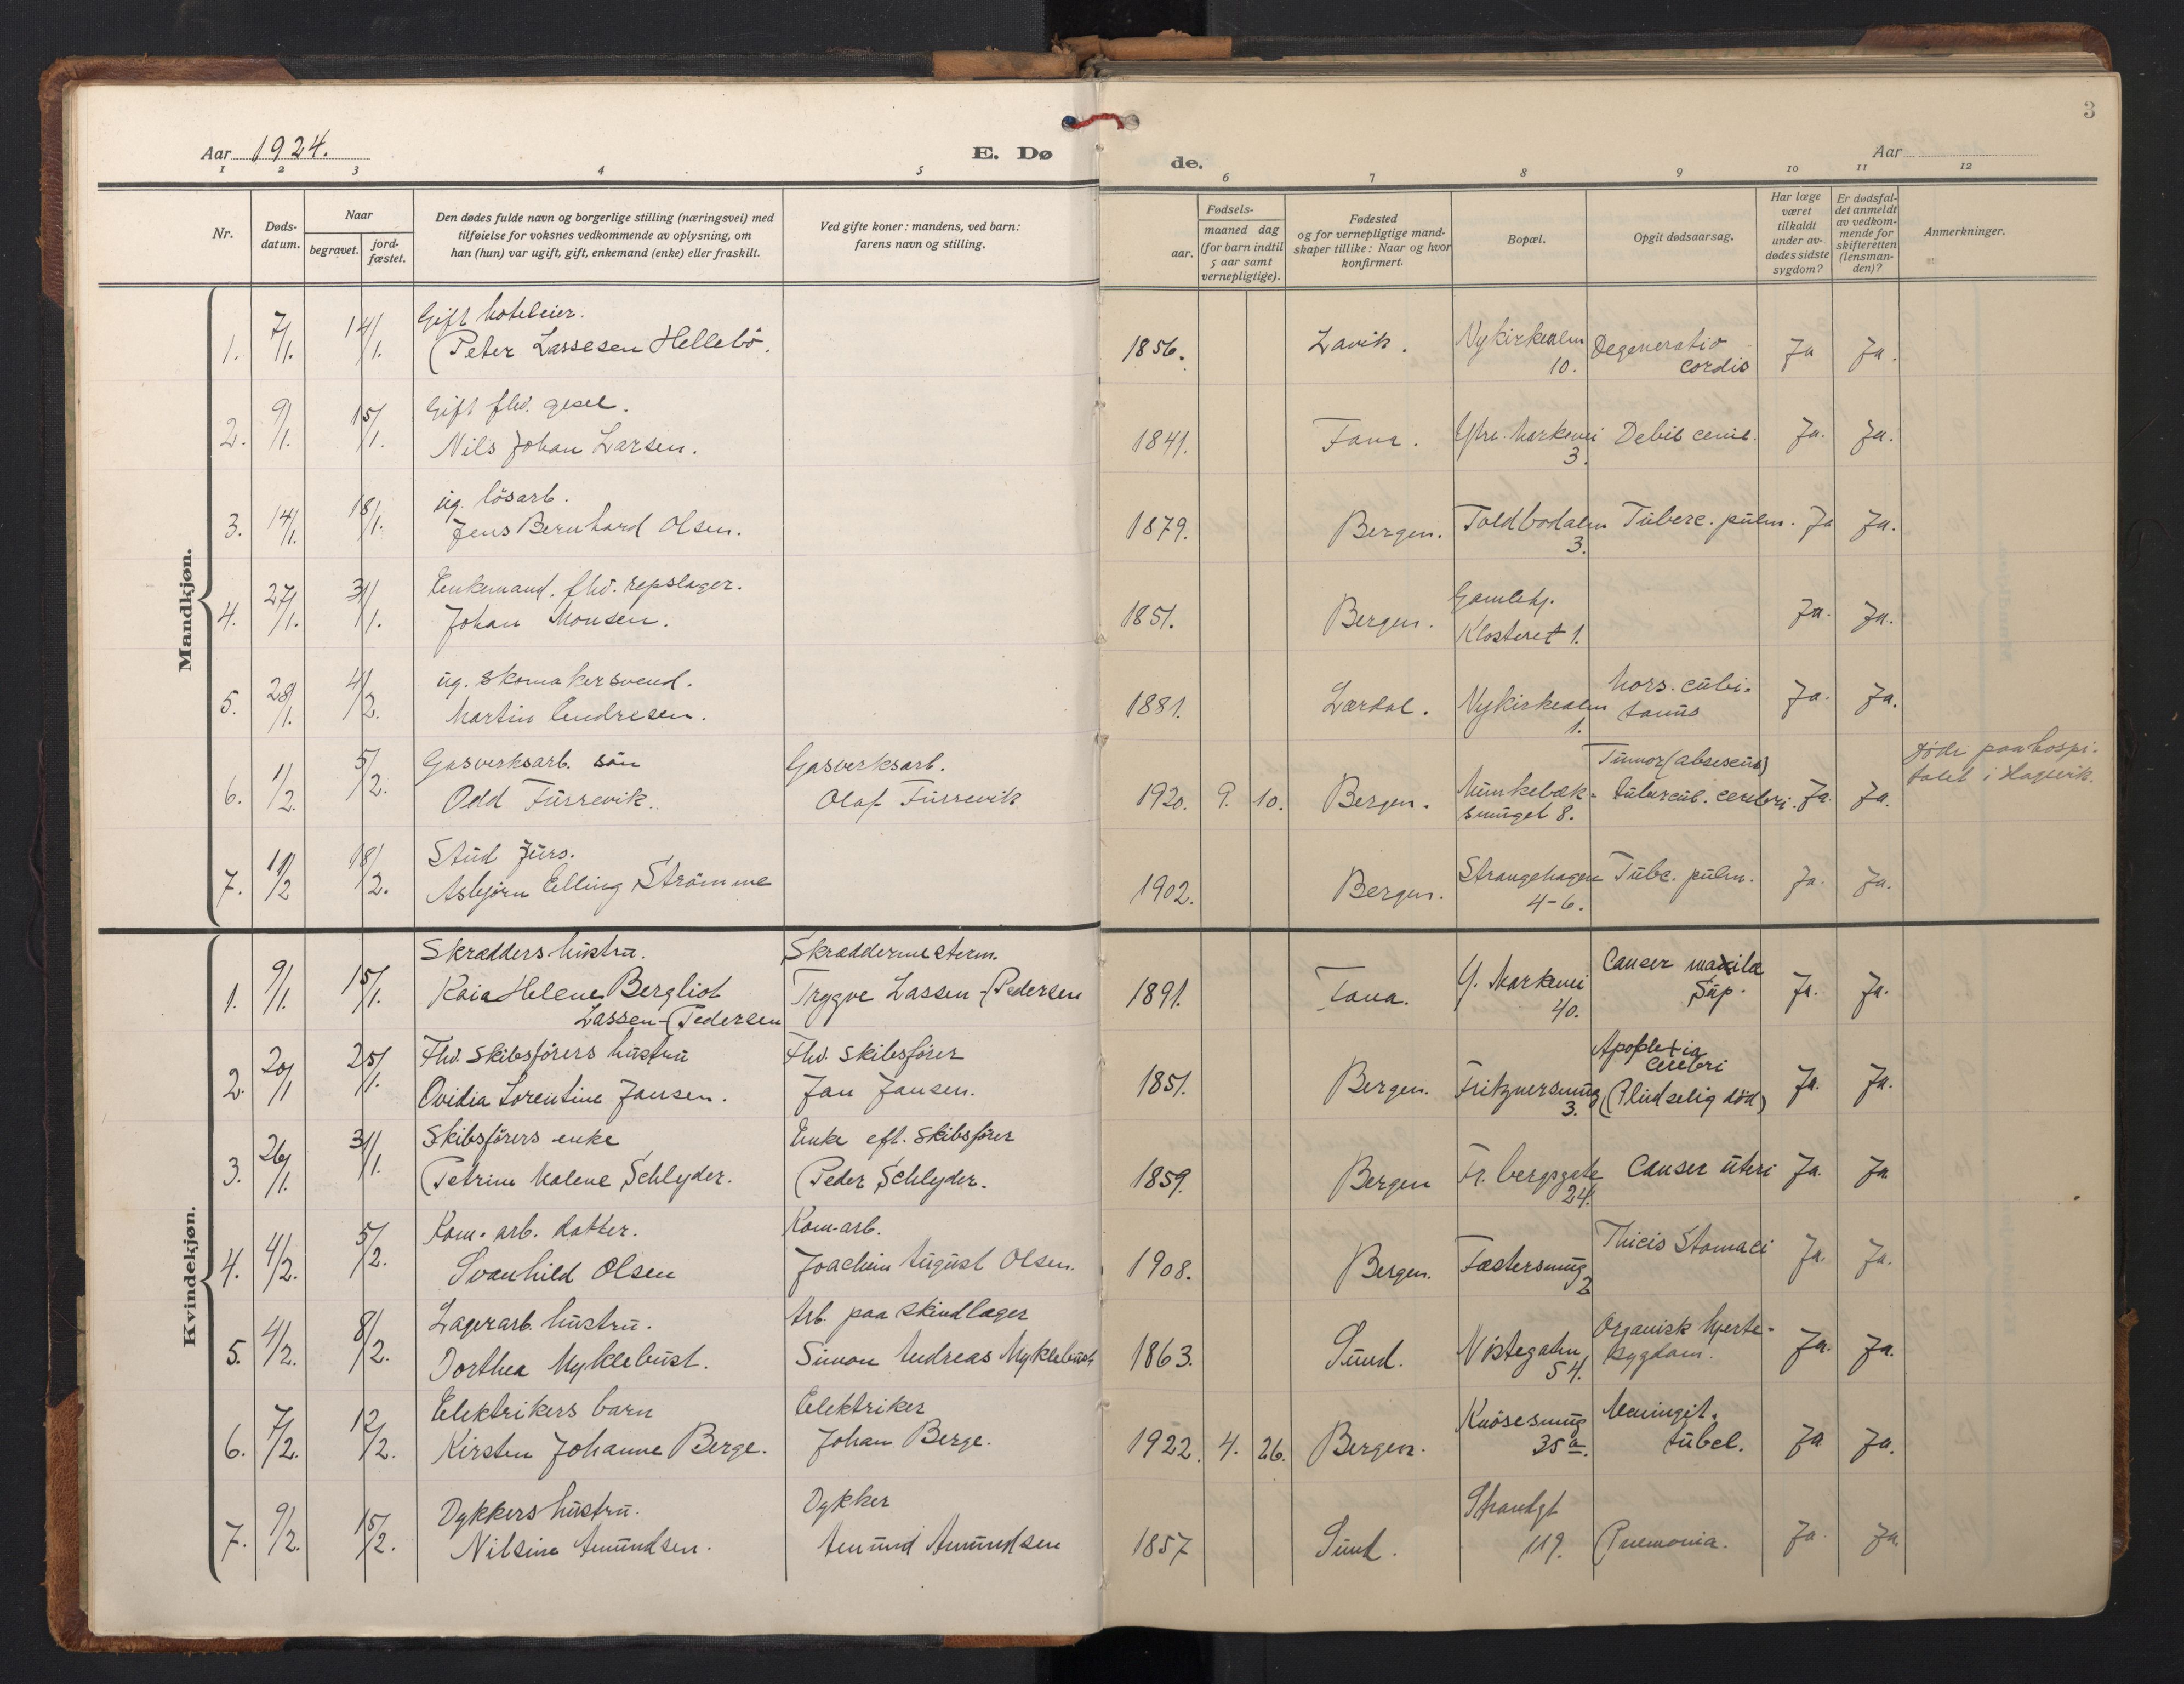 3
Aar 1924.
E. Dø
de.
Aar
1 2 3 4 5
6 7 8 9 10 11 12
Nr.
Døds-
datum.
Naar
begravet.
jord-
fæstet.
Den dødes fulde navn og borgerlige stilling (næringsvei) med
tilføielse for voksnes vedkommende av oplysning, om
han (hun) var ugift, gift, enkemand (enke) eller fraskilt.
Ved gifte koner: mandens, ved barn:
farens navn og stilling.
Fødsels-
aar.
maaned dag
(for barn indtil
5 aar samt
vernepligtige).
Fødested
og for vernepligtige mand-
skaper tillike: Naar og hvor
konfirmert.
Bopæl.
Opgit dødsaarsag.
Har læge
været
tilkaldt
under av-
dødes sidste
sygdom?
Er dødsfal-
det anmeldt
av vedkom-
mende for
skifteretten
(lensman-
den)?
Anmerkninger.
Mandkjøn.
Gift hoteleier.
1. 7/1. 14/1. Peter Lassesen Hellebö. 1856. Lavik. Nykirkealm Degeneratio Ja Ja.
10. cordis
Gift fhv. gesel.
2. 9/1. 15/1. Nils Johan Larsen. 1841. Fana. Ytre Markevei Debil. cenil. Ja. Ja.
3.
ug. lösarb.
3. 14/1. 18/1. Jens Bernhard Olsen. 1879. Bergen. Toldbodalm Tuberc. pulm. Ja Ja.
3.
Enkemand. fhv. repslager. Gamlehj.
4. 27/1. 31/1. Johan Monsen. 1851. Bergen. Klosteret 1. Ja. Ja.
ug. skomakersvend. Mors. cubi-
5. 28/1. 4/2. Martin Endresen. 1881. Lærdal. Nykirkealm tanus Ja. Ja.
1.
Gasverksarb. sön Gasverksarb. Tumor (absesens) döde paa hospi-
6. 1/2. 5/2. Odd Furrevik. Olaf Furrevik 1920. 9. 10. Bergen. Munkebæk- tubercul. cerebri. Ja. Ja. talet i Hagevik.
smuget 8.
Stud jurs.
7. 11/2 18/2. Asbjörn Elling Strömme 1902. Bergen. Strangehagen Tubc. pulm. Ja. Ja.
4-6.
Kvindekjøn.
Skrædders hustru. Skræddermesterm. Canser maxila
1. 9/1. 15/1. Kaia Helene Bergliot Trygve Lassen-Pedersen 1891. Fana. Y. Markevei Sup. Ja. Ja.
Lassen-Pedersen 40.
Fhv. skibsförers hustru Fhv. skibsförer Apoplexia
cerebri
2. 20/1 25/1. Ovidia Lorentine Jansen. Jan Jansen. 1851. Bergen. Fritznersmug (Plindselig död) Ja. Ja.
3.
Skibsförers enke Enke eft. skibsförer
3. 26/1. 31/1. Petrine Malene Schlyder. Peder Schlyder. 1859. Bergen Fr. bergsgate Canser uteri Ja. Ja
24.
Kom. arb. datter. Kom. arb. Thicis Stomaci
4. 4/2. 5/2. Svanhild Olsen Joachim August Olsen. 1908. Bergen. Fæstersmug Ja. Ja.
2
Lagerarb. hustru. Arb. paa skindlager Organisk hjerte-
5. 4/2. 8/2. Dorthea Myklebust. Simon Andreas Myklebust 1863. Sund. Nöstegaten sygdom. Ja. Ja.
54.
Elektrikers barn Elektriker Knösesmug Meningit.
6. 7/2. 12/2. Kirsten Johanne Berge. Johan Berge. 1922. 4. 26. Bergen. 35 a. tubel. Ja Ja.
Dykkers hustru. Dykker Strandgt
7. 9/2. 15/2. Nilsine Amundsen. Amund Amundsen 1857 Sund. 119. Pnemonia. Ja. Ja.